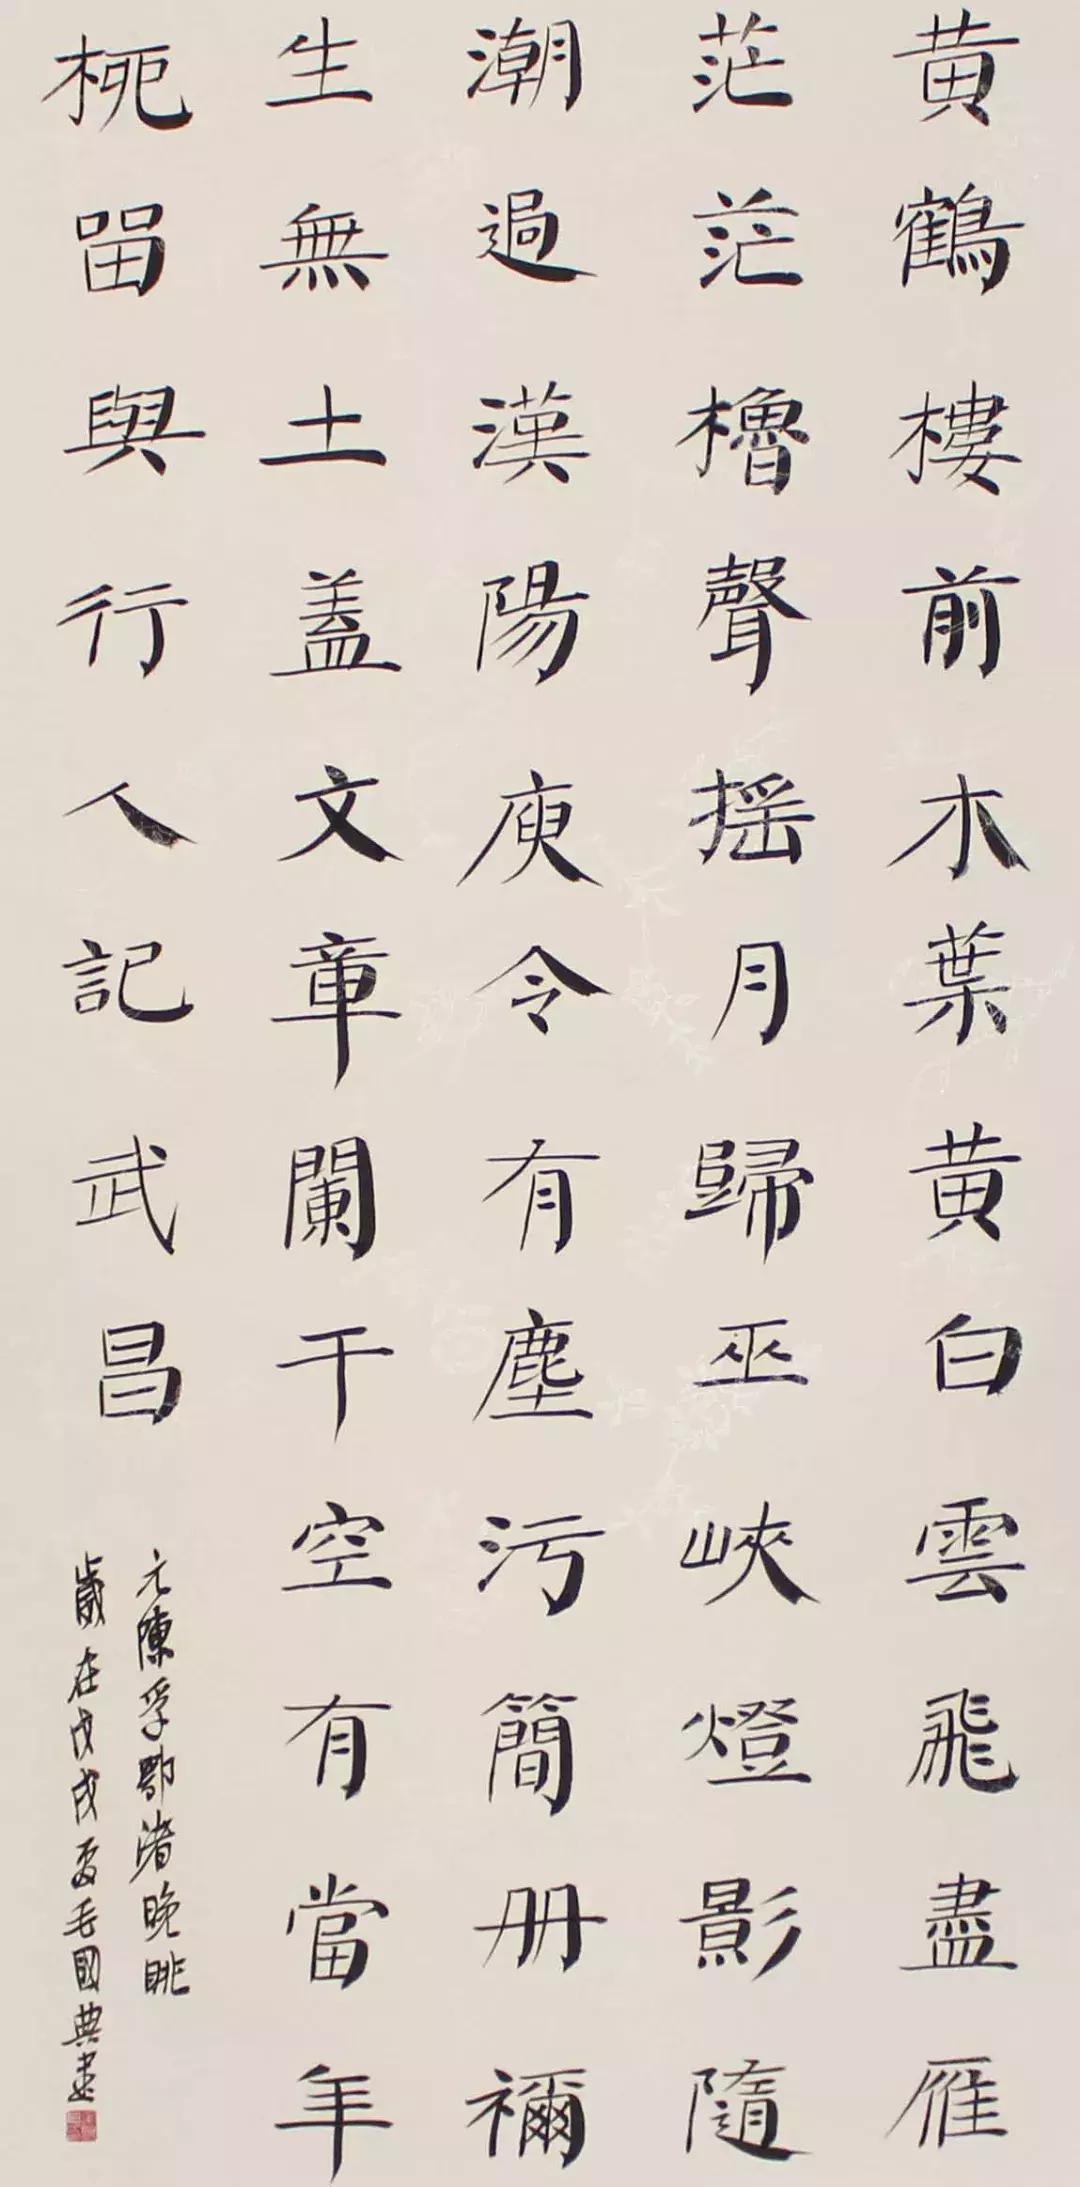 黄鶴樓前木葉黄白雲飛盡雁
茫茫櫓聲摇月歸巫峽燈影隨
潮過漢陽庾令有塵污簡册禰
生無土蓋文章闌干空有當年
柳留與行人記武昌
元陳孚鄂渚晚眺
歲在戊戌夏毛國典書